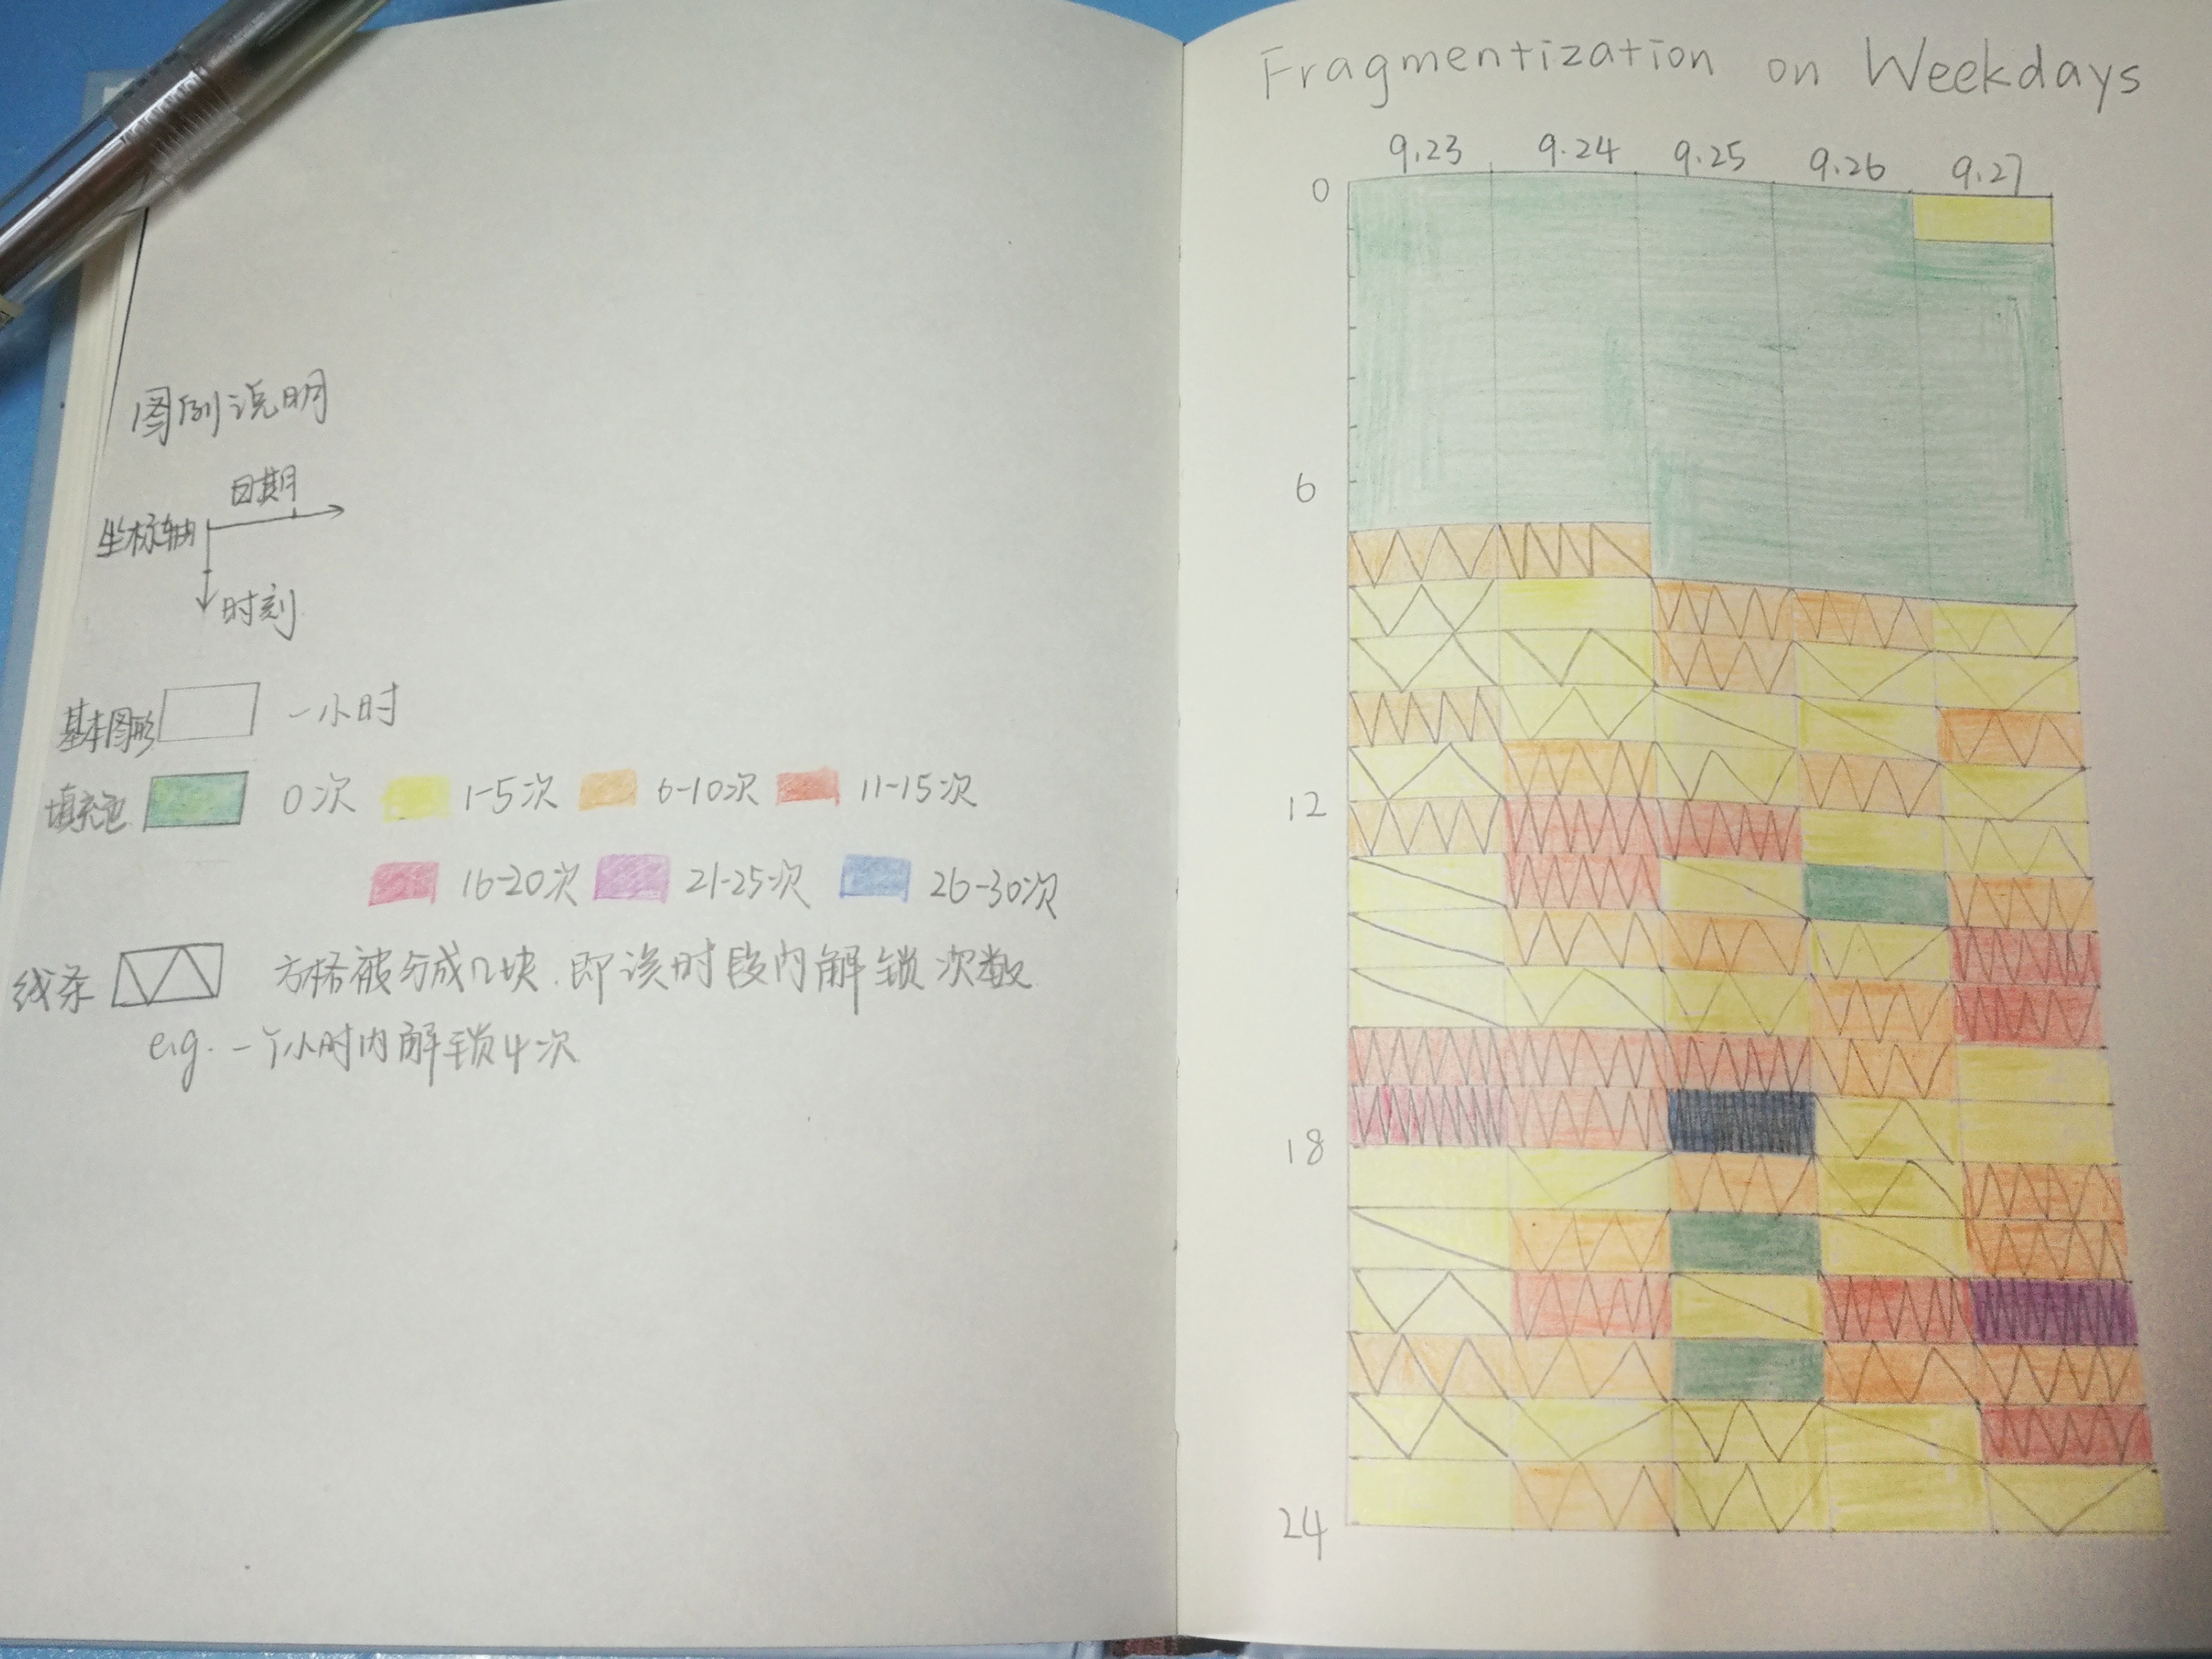 图例说明
日期
坐标轴
时刻
基本图形 一小时
填充色 0次 1-5次 6-10次 11-15次
16-20次 21-25次 26-30次
线条 方格被分成几块.即该时段内解锁次数
e.g. 一个小时内解锁4次
Fragmentization on Weekdays
9.23 9.24 9.25 9.26 9.27
0
6
12
18
24